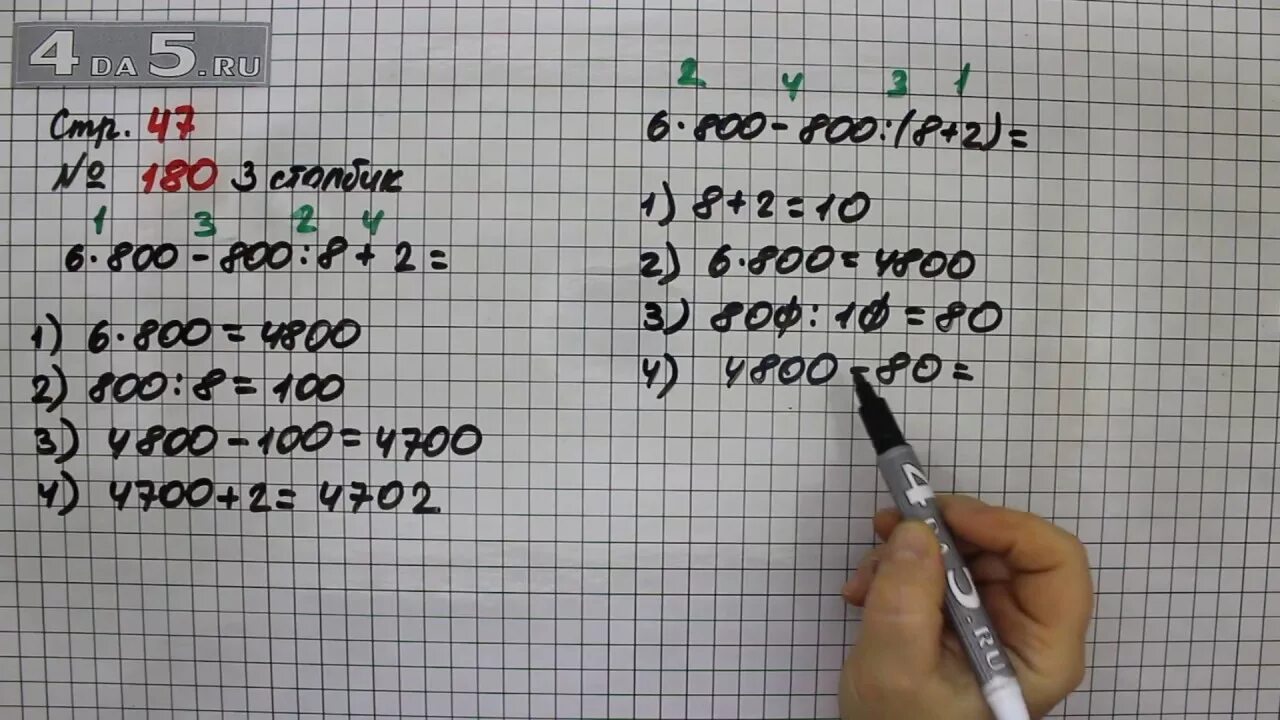 4DA5.RU
Стр. 47
№ 180 3 столбик
1 3 2 4
6·800-800:8+2=
1) 6·800=4800
2) 800:8=100
3) 4800-100=4700
4) 4700+2=4702
2 4 3 1
6·800-800:(8+2)=
1) 8+2=10
2) 6·800=4800
3) 800:10=80
4) 4800-80=
4DA5.RU